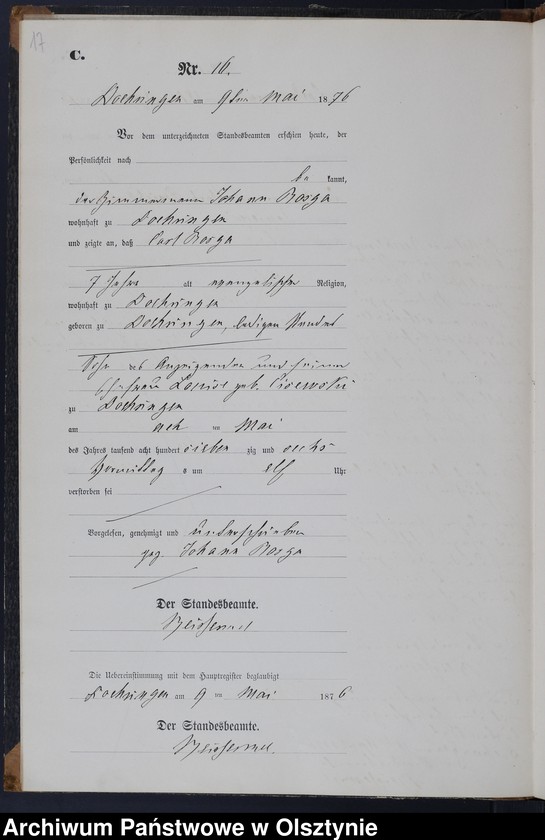 17
C.
Nr. 16.
Doehringen am 9ten Mai 1876
Vor dem unterzeichneten Standesbeamten erschien heute, der
Persönlichkeit nach
be kannt,
der Zimmermann Johann Rozga
wohnhaft zu Doehringen
und zeigte an, daß Carl Rozga
7 Jahre alt evangelischer Religion,
wohnhaft zu Doehringen
geboren zu Doehringen, ledigen Standes
Sohn des Anzeigenden und seiner
Ehefrau Louise geb.
zu Doehringen
am acht ten Mai
des Jahres tausend acht hundert sieben zig und sechs
Vormittag s um elf Uhr
verstorben sei
Vorgelesen, genehmigt und unterschrieben
gez. Johann Rozga
Der Standesbeamte.
Die Uebereinstimmung mit dem Hauptregister beglaubigt
Doehringen am 9 ten Mai 1876
Der Standesbeamte.
Archiwum Państwowe w Olsztynie